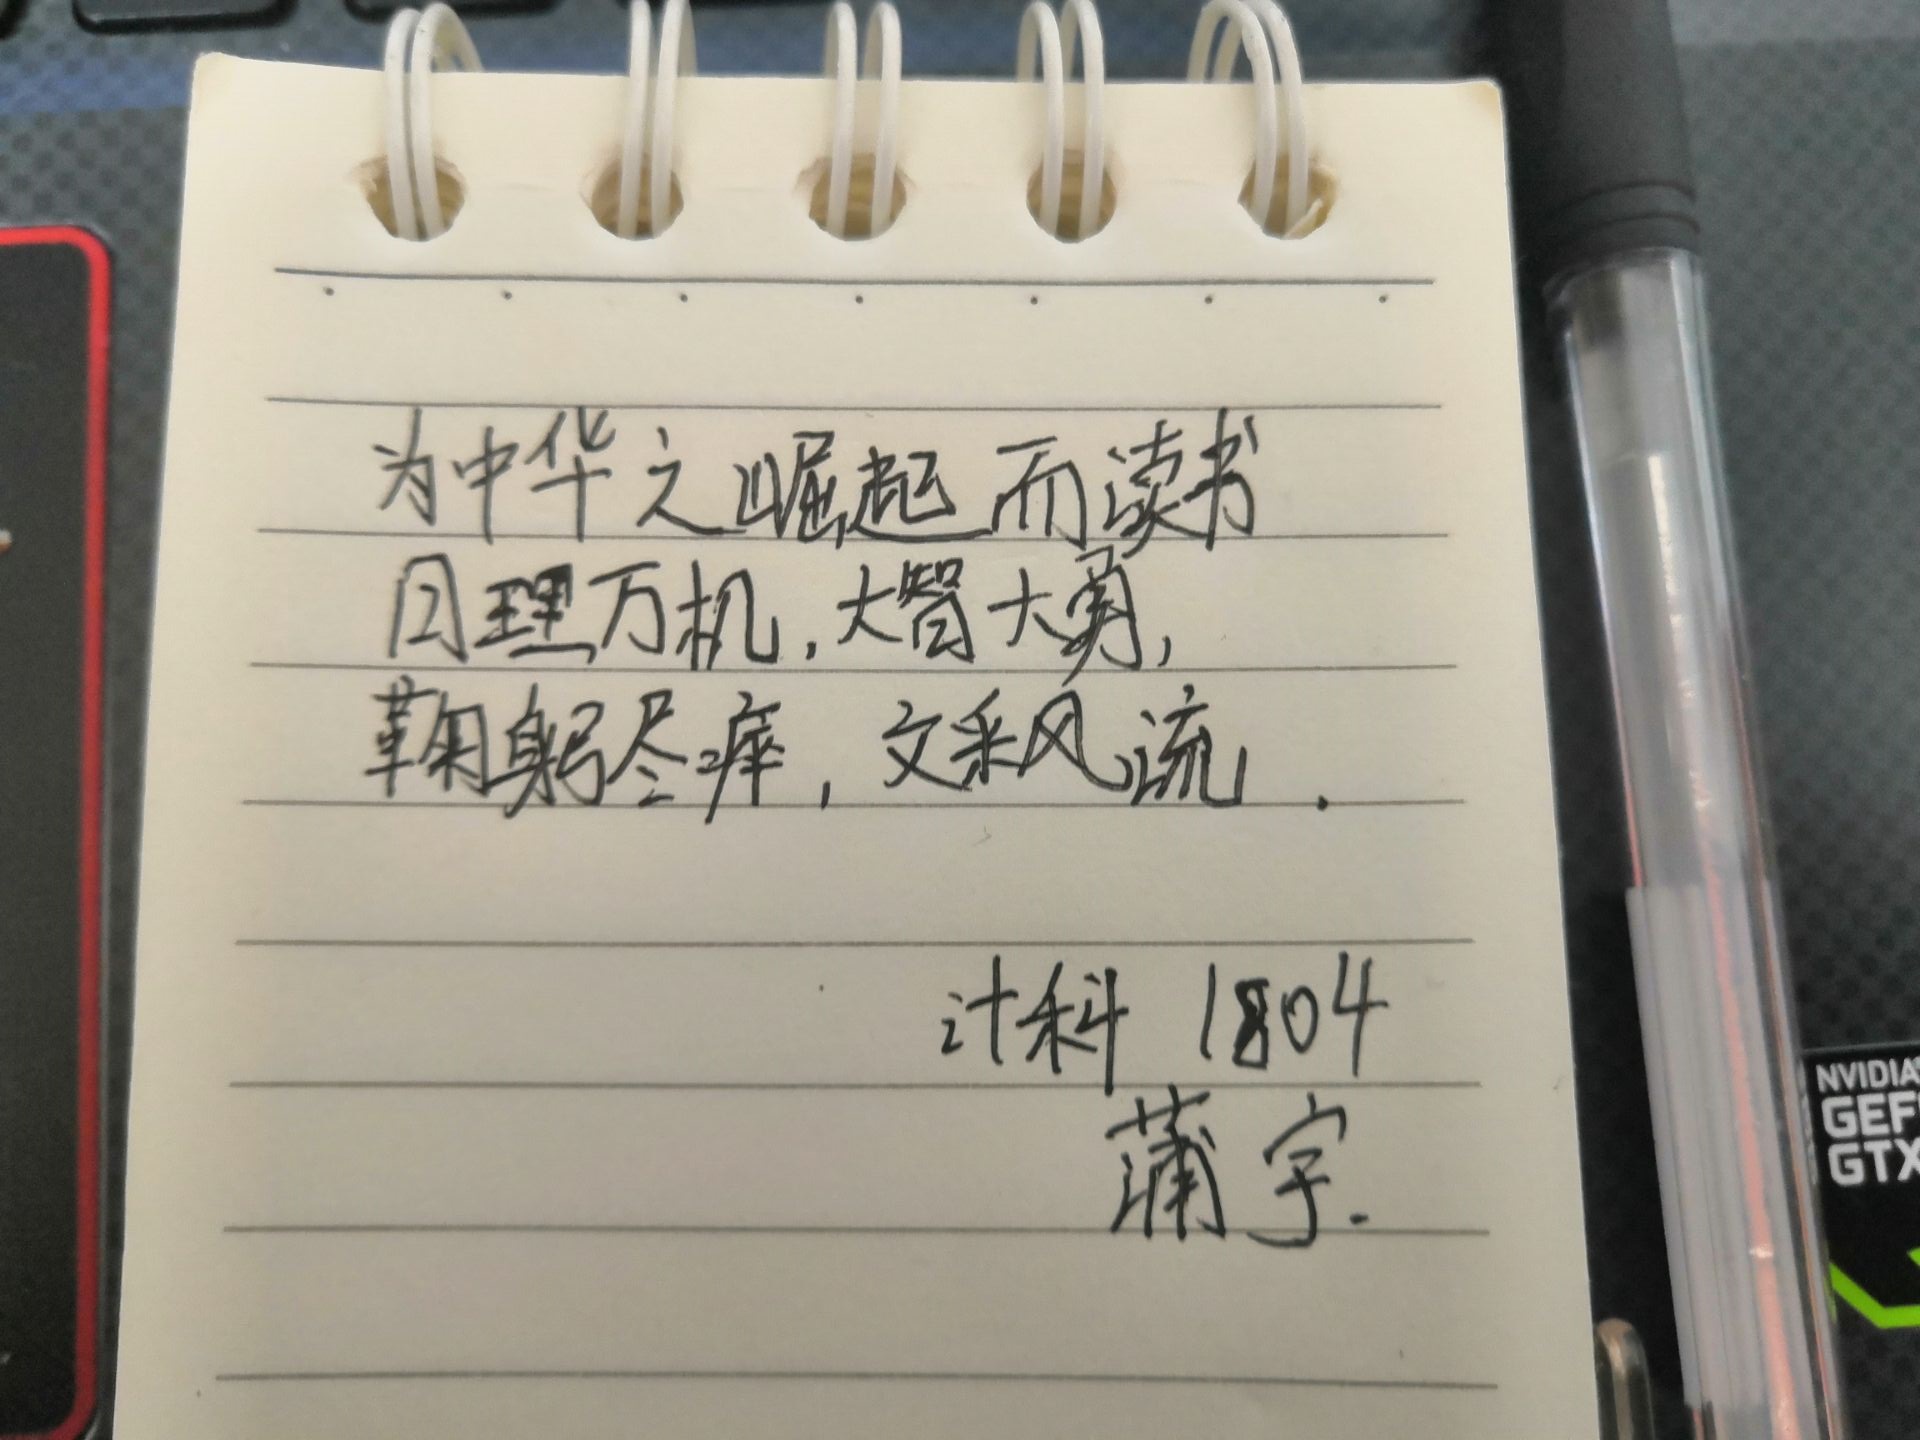 为中华之崛起而读书
日理万机，大智大勇，
鞠躬尽瘁，文采风流．
计科 1804
蒲宇．
NVIDIA
GTX